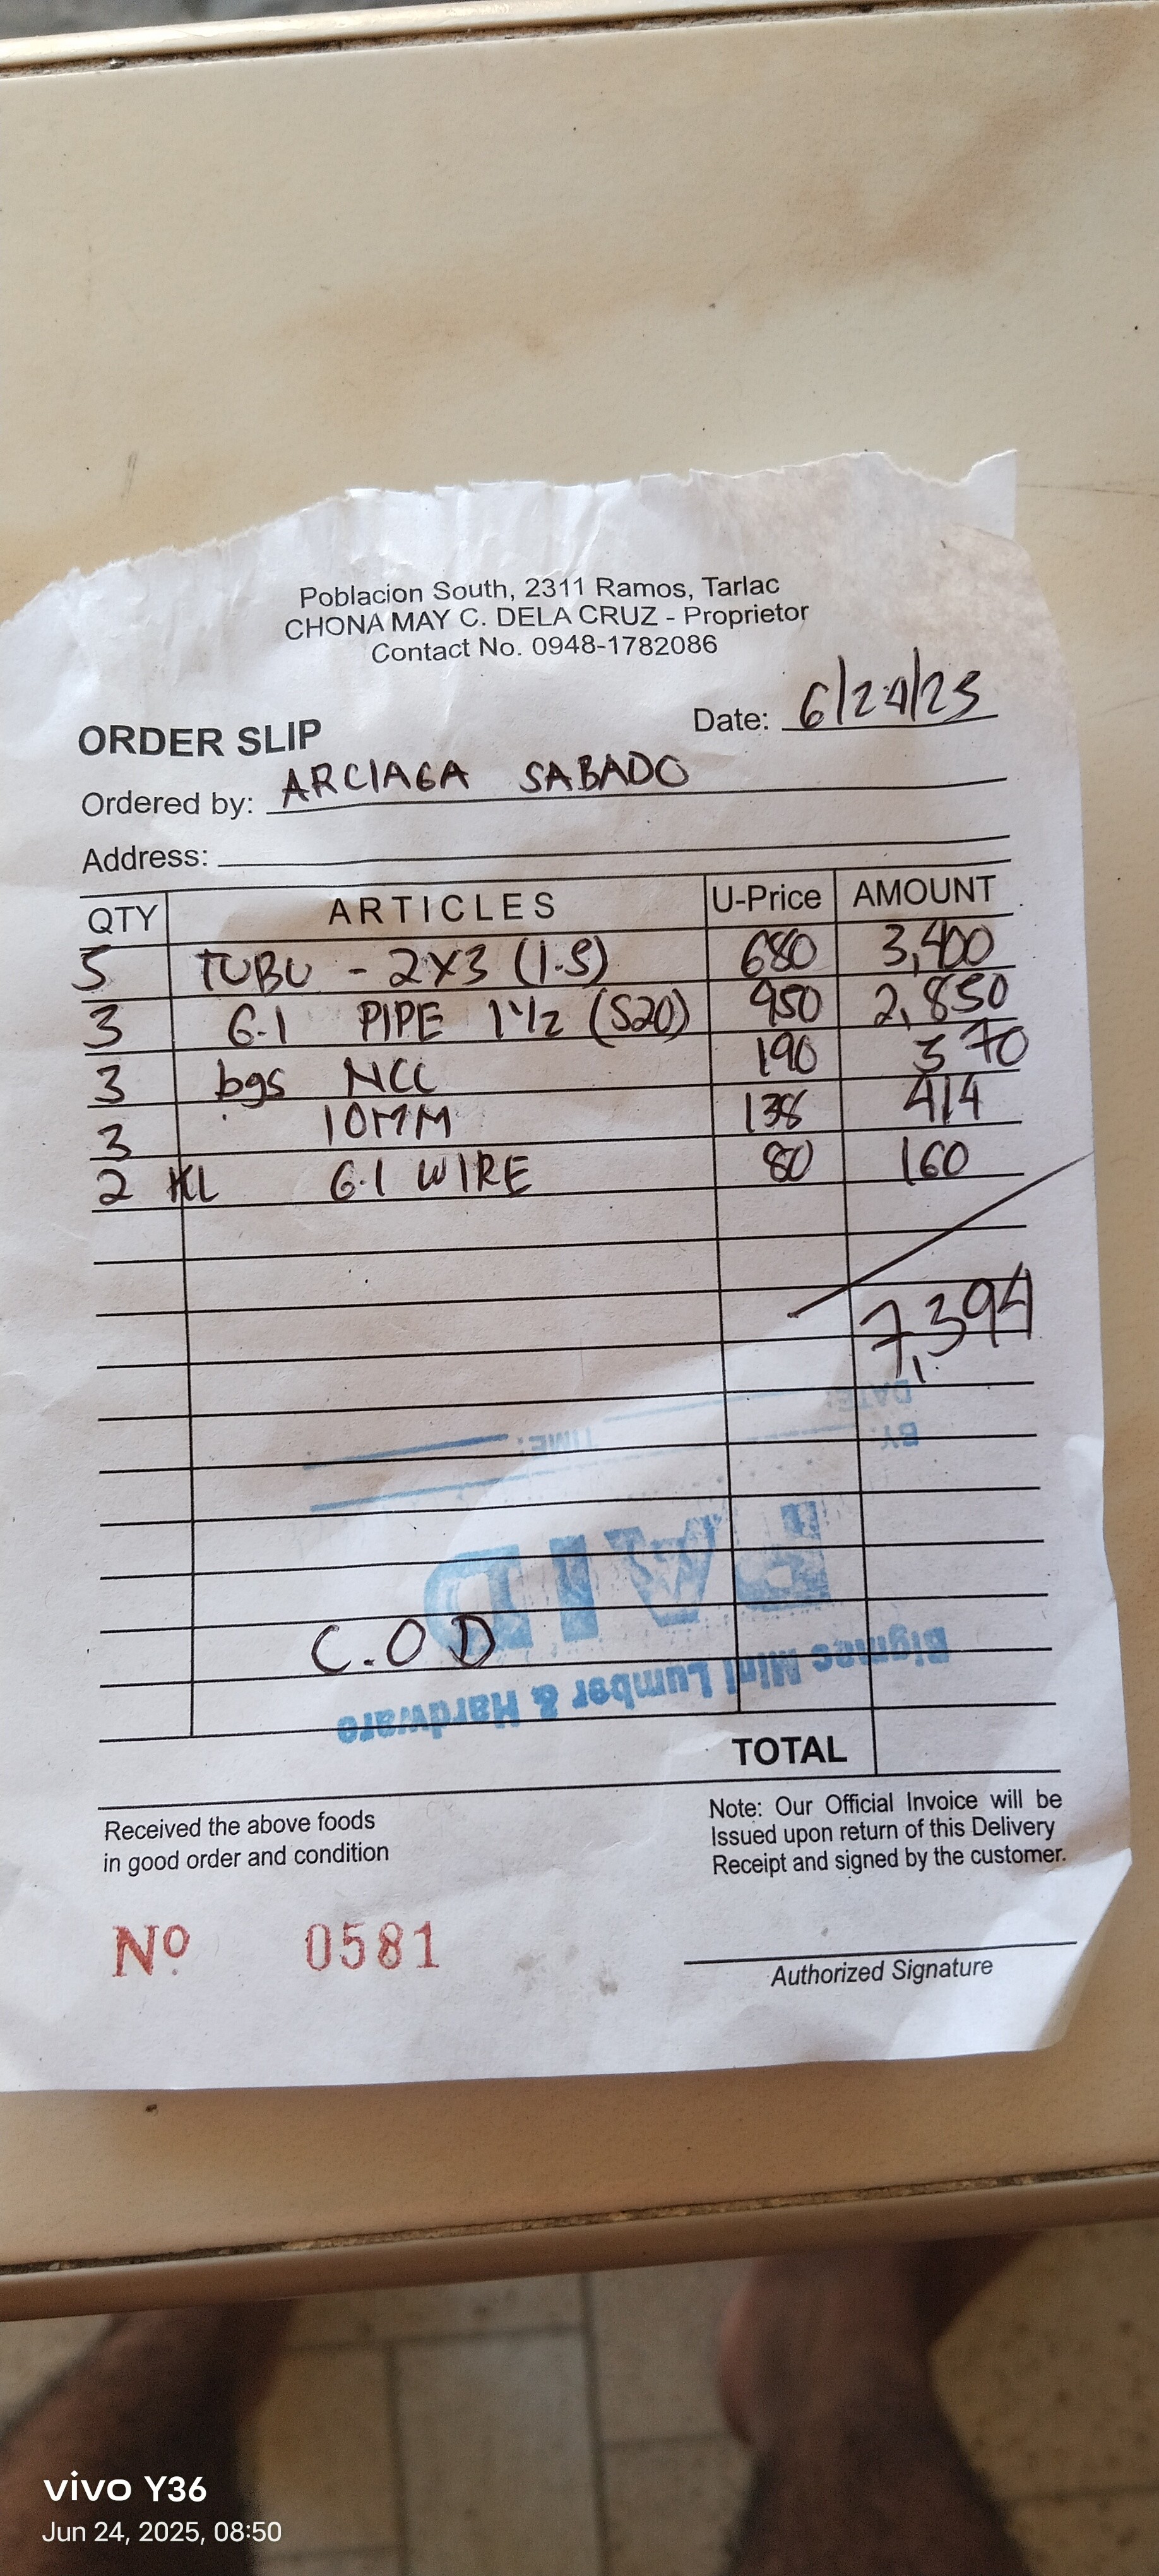 Poblacion South, 2311 Ramos, Tarlac
CHONA MAY C. DELA CRUZ - Proprietor
Contact No. 0948-1782086
ORDER SLIP Date: 6/24/25
Ordered by: ARCIAGA SABADO
Address:
QTY ARTICLES U-Price AMOUNT
5 TUBU - 2x3 (1.5) 680 3,400
3 G.I PIPE 1 1/2 (S20) 950 2,850
3 bgs NCC 190 570
3 10MM 138 414
2 KL G.I WIRE 80 160
7,394
DATE:
BY: TIME:
PAID
C.O.D
Bigmac Mini Lumber & Hardware
TOTAL
Received the above foods
in good order and condition
Note: Our Official Invoice will be
Issued upon return of this Delivery
Receipt and signed by the customer.
Nº 0581
Authorized Signature
vivo Y36
Jun 24, 2025, 08:50